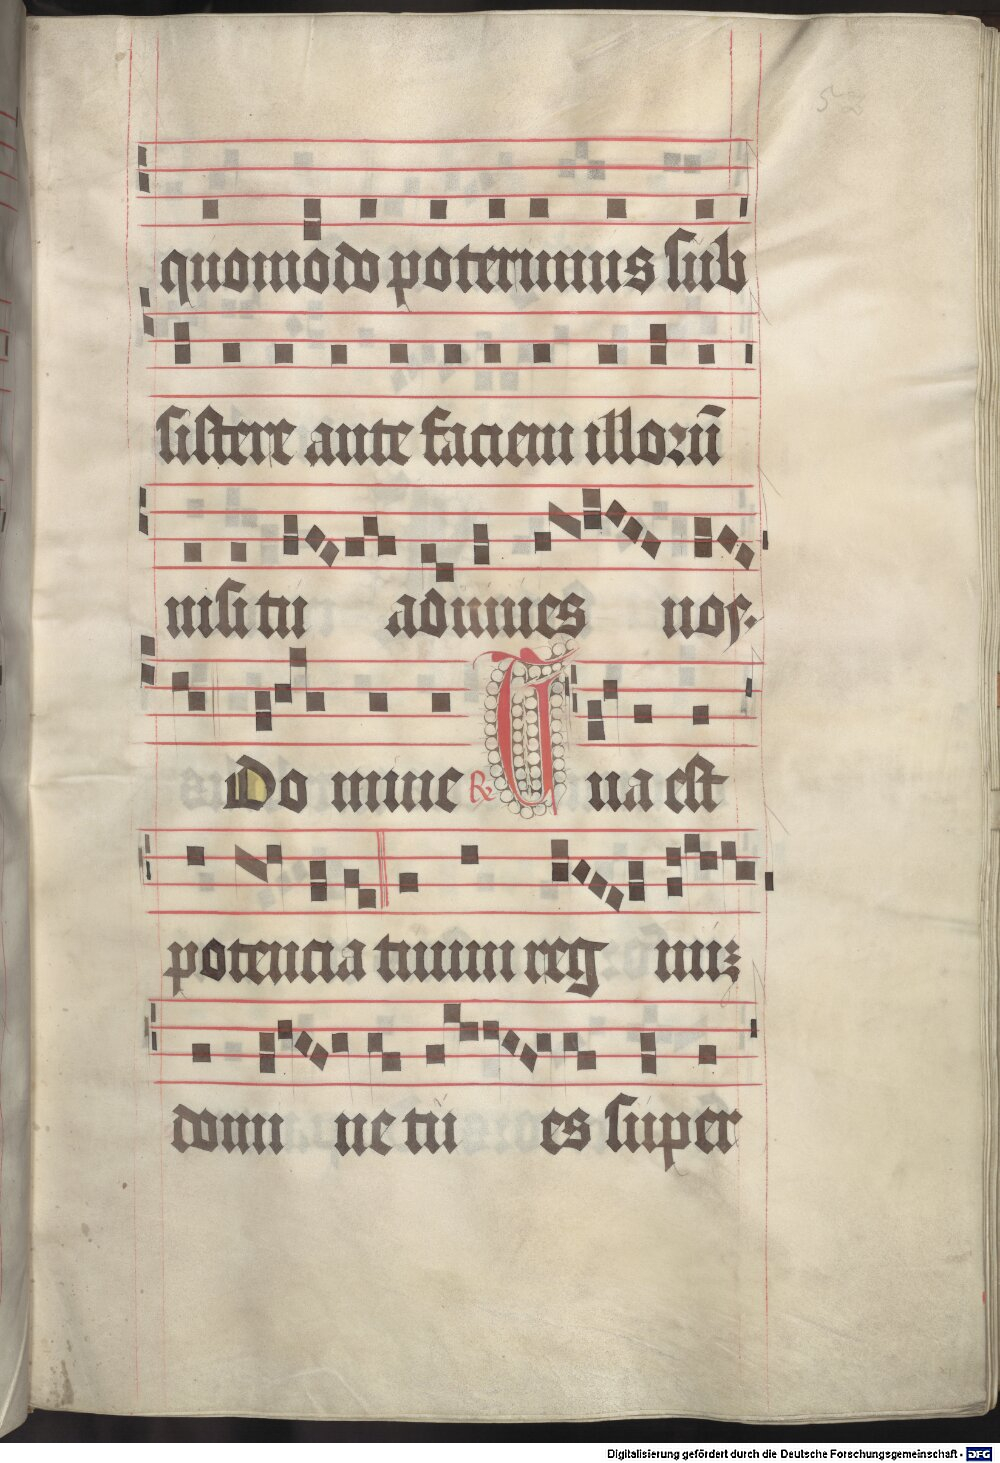 52
quomodo poterimus sub
sistere ante faciem illorū
nisi tu adiuues nos.
Do mine ℟ Tua est
potencia tuum reg nuꝫ
domi ne tu es super
Digitalisierung gefördert durch die Deutsche Forschungsgemeinschaft - DFG